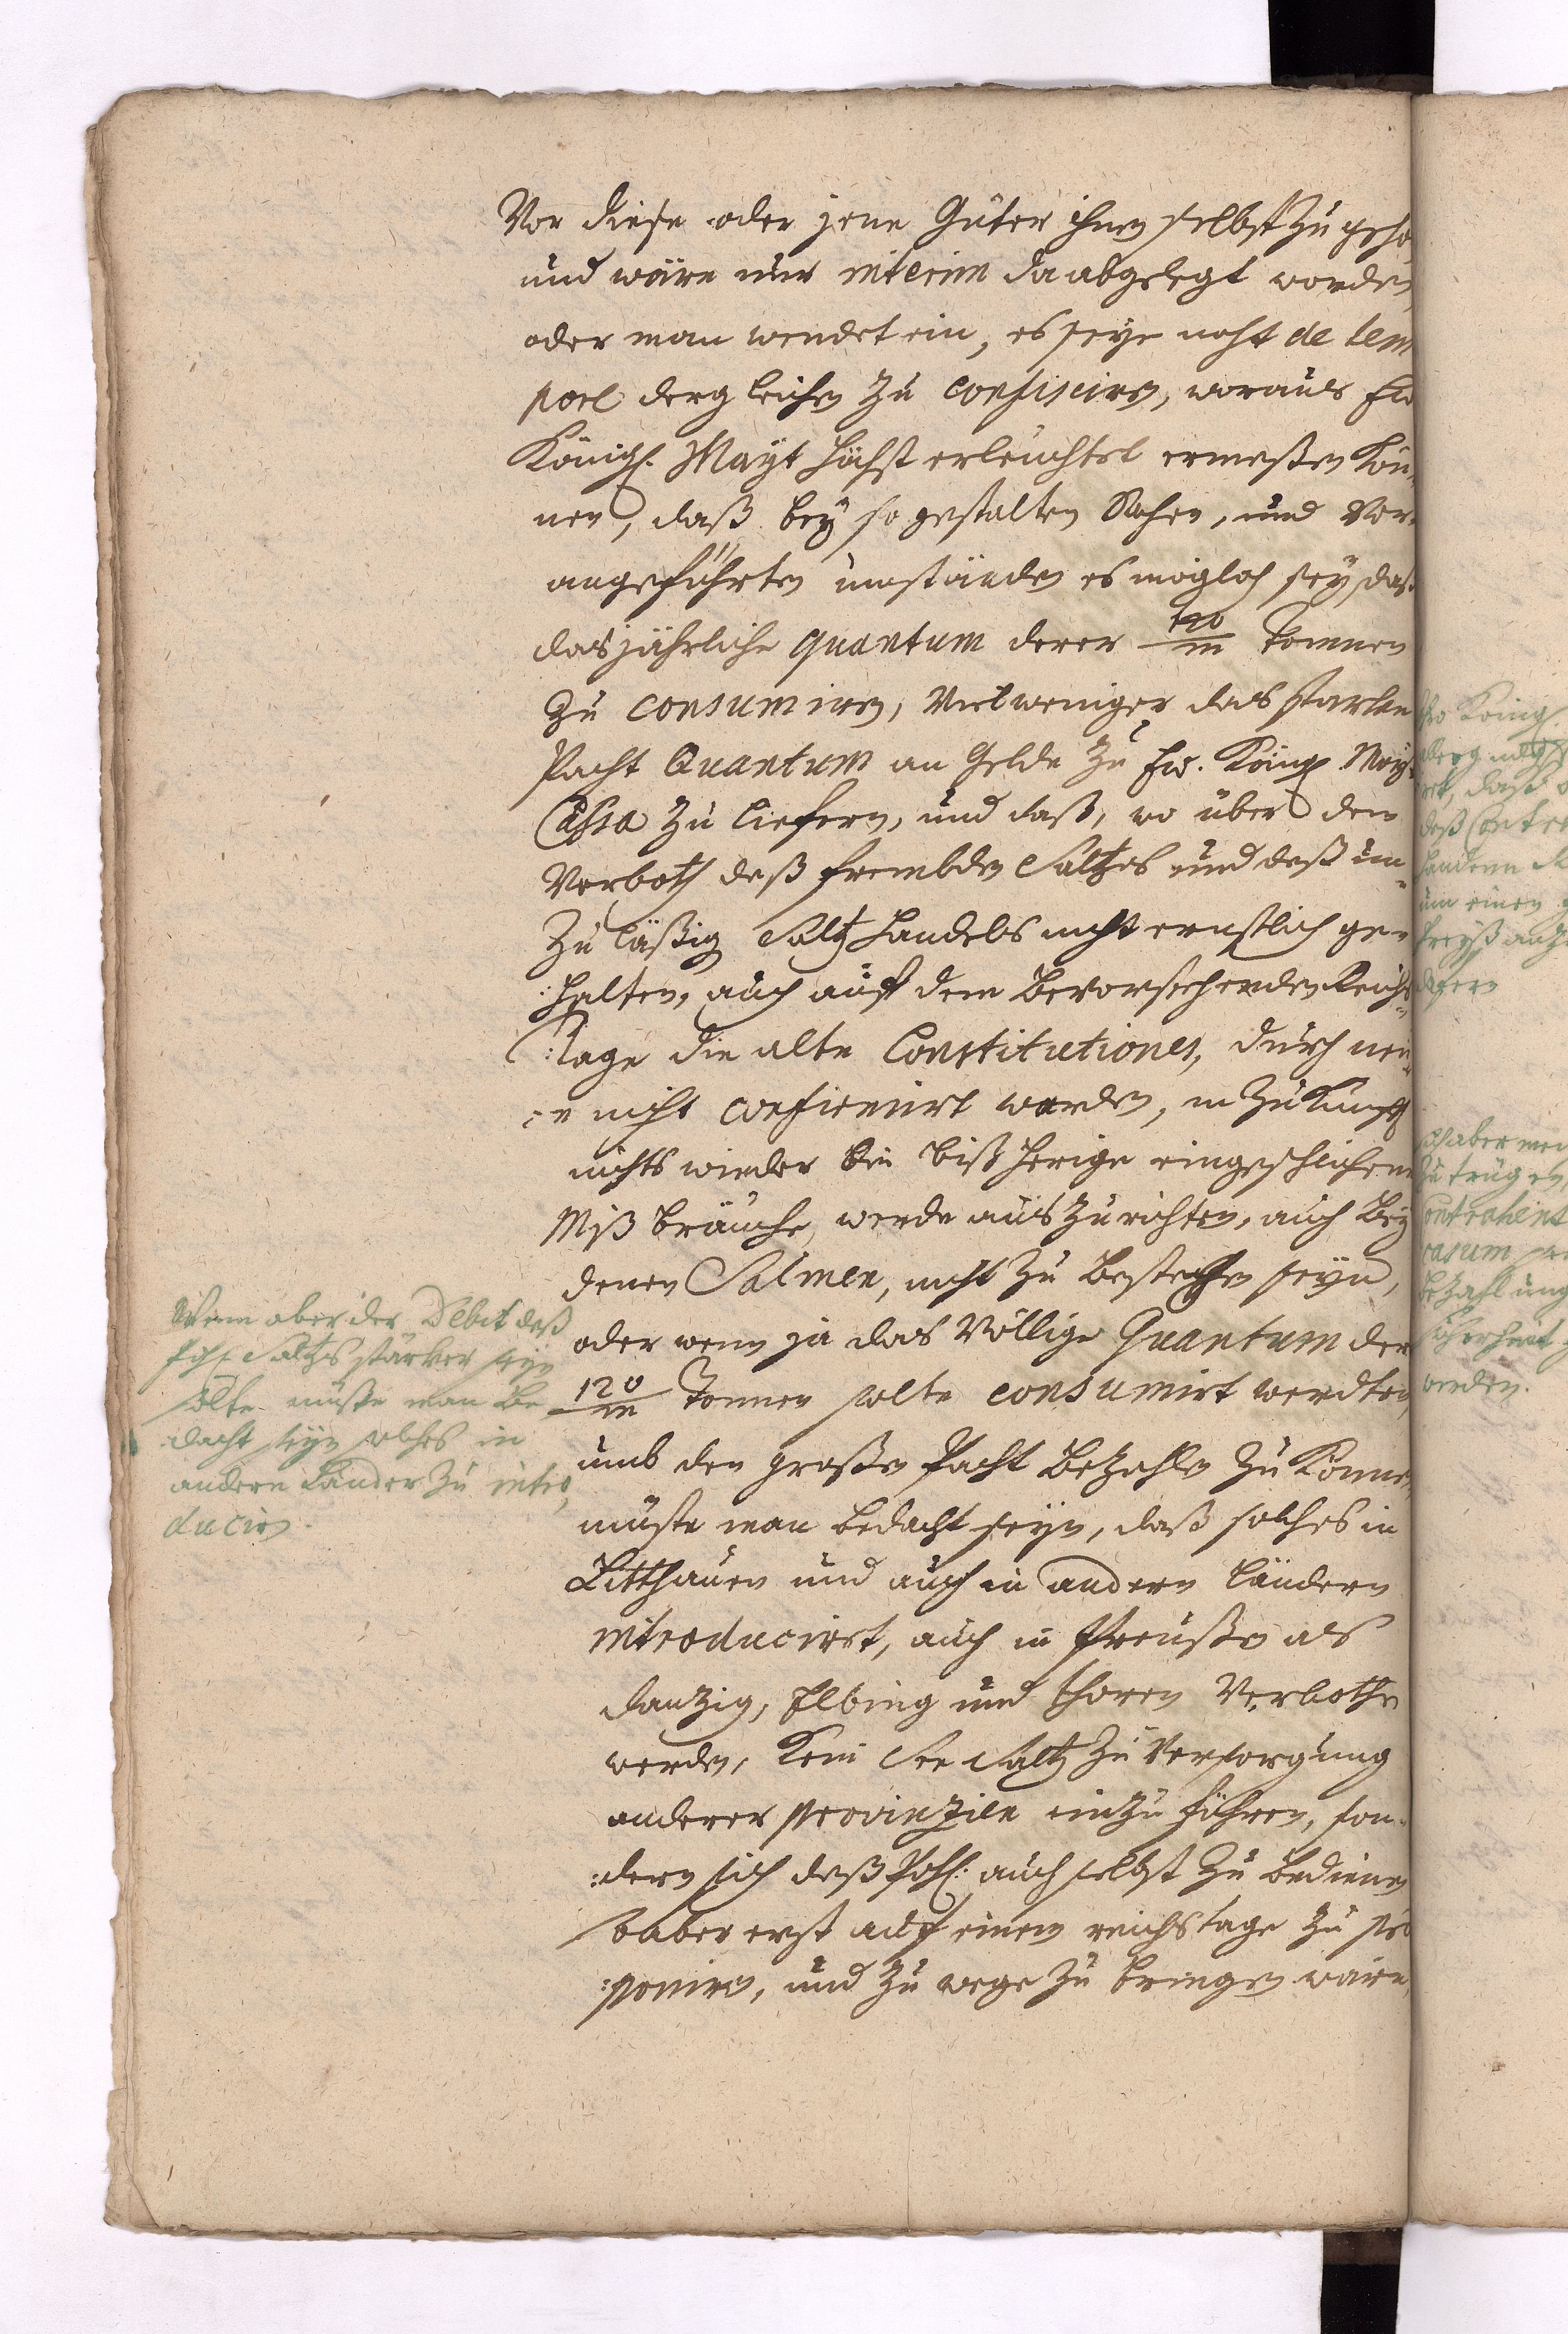 Vor diese oder jene Güter ihnen selbst zu gehö
und wäre nur interim da abgelegt worden,
oder man wendet ein, es seye nicht de tem
pore dergleichen zu confisciren, woraus Ew
Königl. Mayt höchst erleuchtet ermeßen kön„
nen, daß bey so gestalten Sachen, und Vor„
angeführten umständen es möglich sey, das
das jährliche quantum derer 120/m Tonnen
zu consumiren, Viel weniger das starcke
Pacht Quantum an Gelde zu Ew. Königl Mayt
Cassa zu liefern, und daß, wo über dem
Verboth deß frembden Saltzes und deß un„
zuläßig Saltz Handels nicht ernstlich ge„
:halten, auch auf dem bevorstehenden Reichs„
:Tage die alte Constitutiones, durch neu„
:e nicht confirmirt werden, in Zukunfft
nichts wieder die bißherige eingeschlichene
Mißbräuche, werde auszurichten, auch bey
denen Salinen, nicht zu bestehen seyn,
oder wenn ja das Völlige Quantum der
120/m Tonnen solte consumirt werdten,
umb den großen Pacht bezahlen zu können,
müste man bedacht seyn, daß solches in
Litthauen und auch in andern Ländern
introducirt, auch in Preußen als
Danzig, Elbing und Thoren Verbothen
werden, kein See Saltz zu Versorgung
anderer Provinzien einzuführen, son„
:dern sich deß Pohl: auch selbst zu bedienen
so aber erst auf einem reichstage zu pro
:poniren, und zu wege zu bringen wäre,
Wenn aber der Debit deß
Pohl Saltzes stärker seyn
solte müste man be„
dacht seyn solches in
andere Länder zu intro„
duciren.
Königl.
daß
um einen
ich aber
zu trügen,
contrahent
casum
bezahlung
Sicherheit
werden.